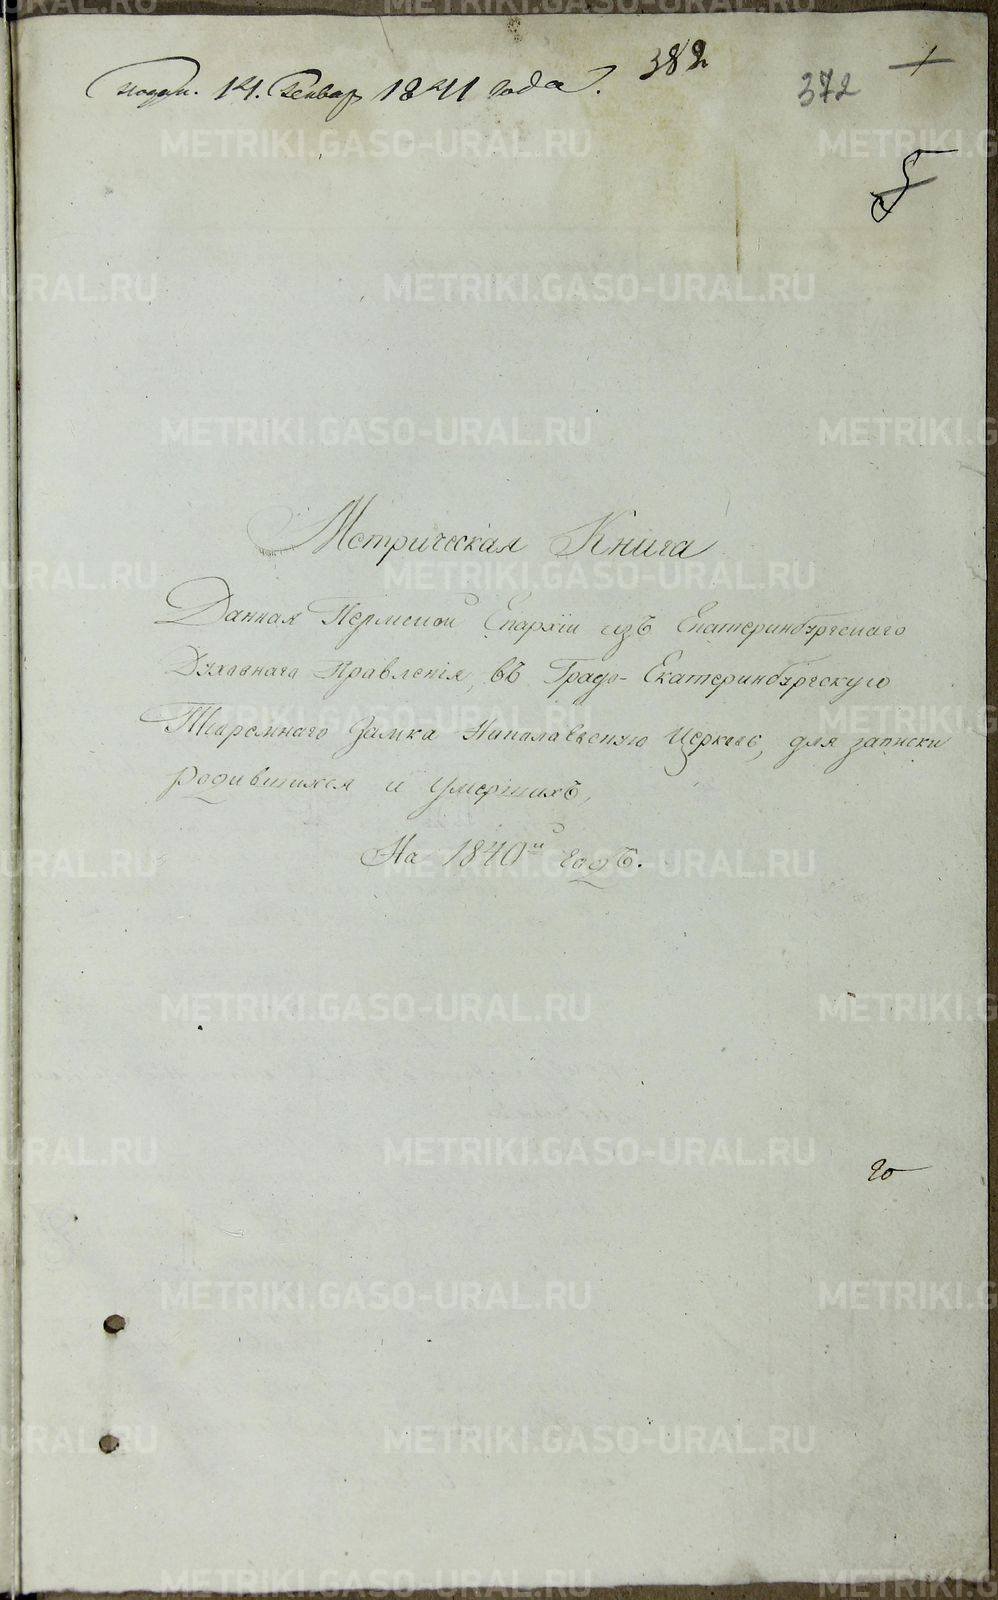 подан. 14. Генвар 1841 года.
382
372
5
Метрическая Книга
Данная Пермской Епархіи изъ Екатеринбургскаго
Духовнаго Правленія, въ Градо-Екатеринбургскую
Тюремнаго Замка Николаевскую Церковь, для записки
родившихся и умершихъ,
На 1840й годъ.
20
METRIKI.GASO-URAL.RU